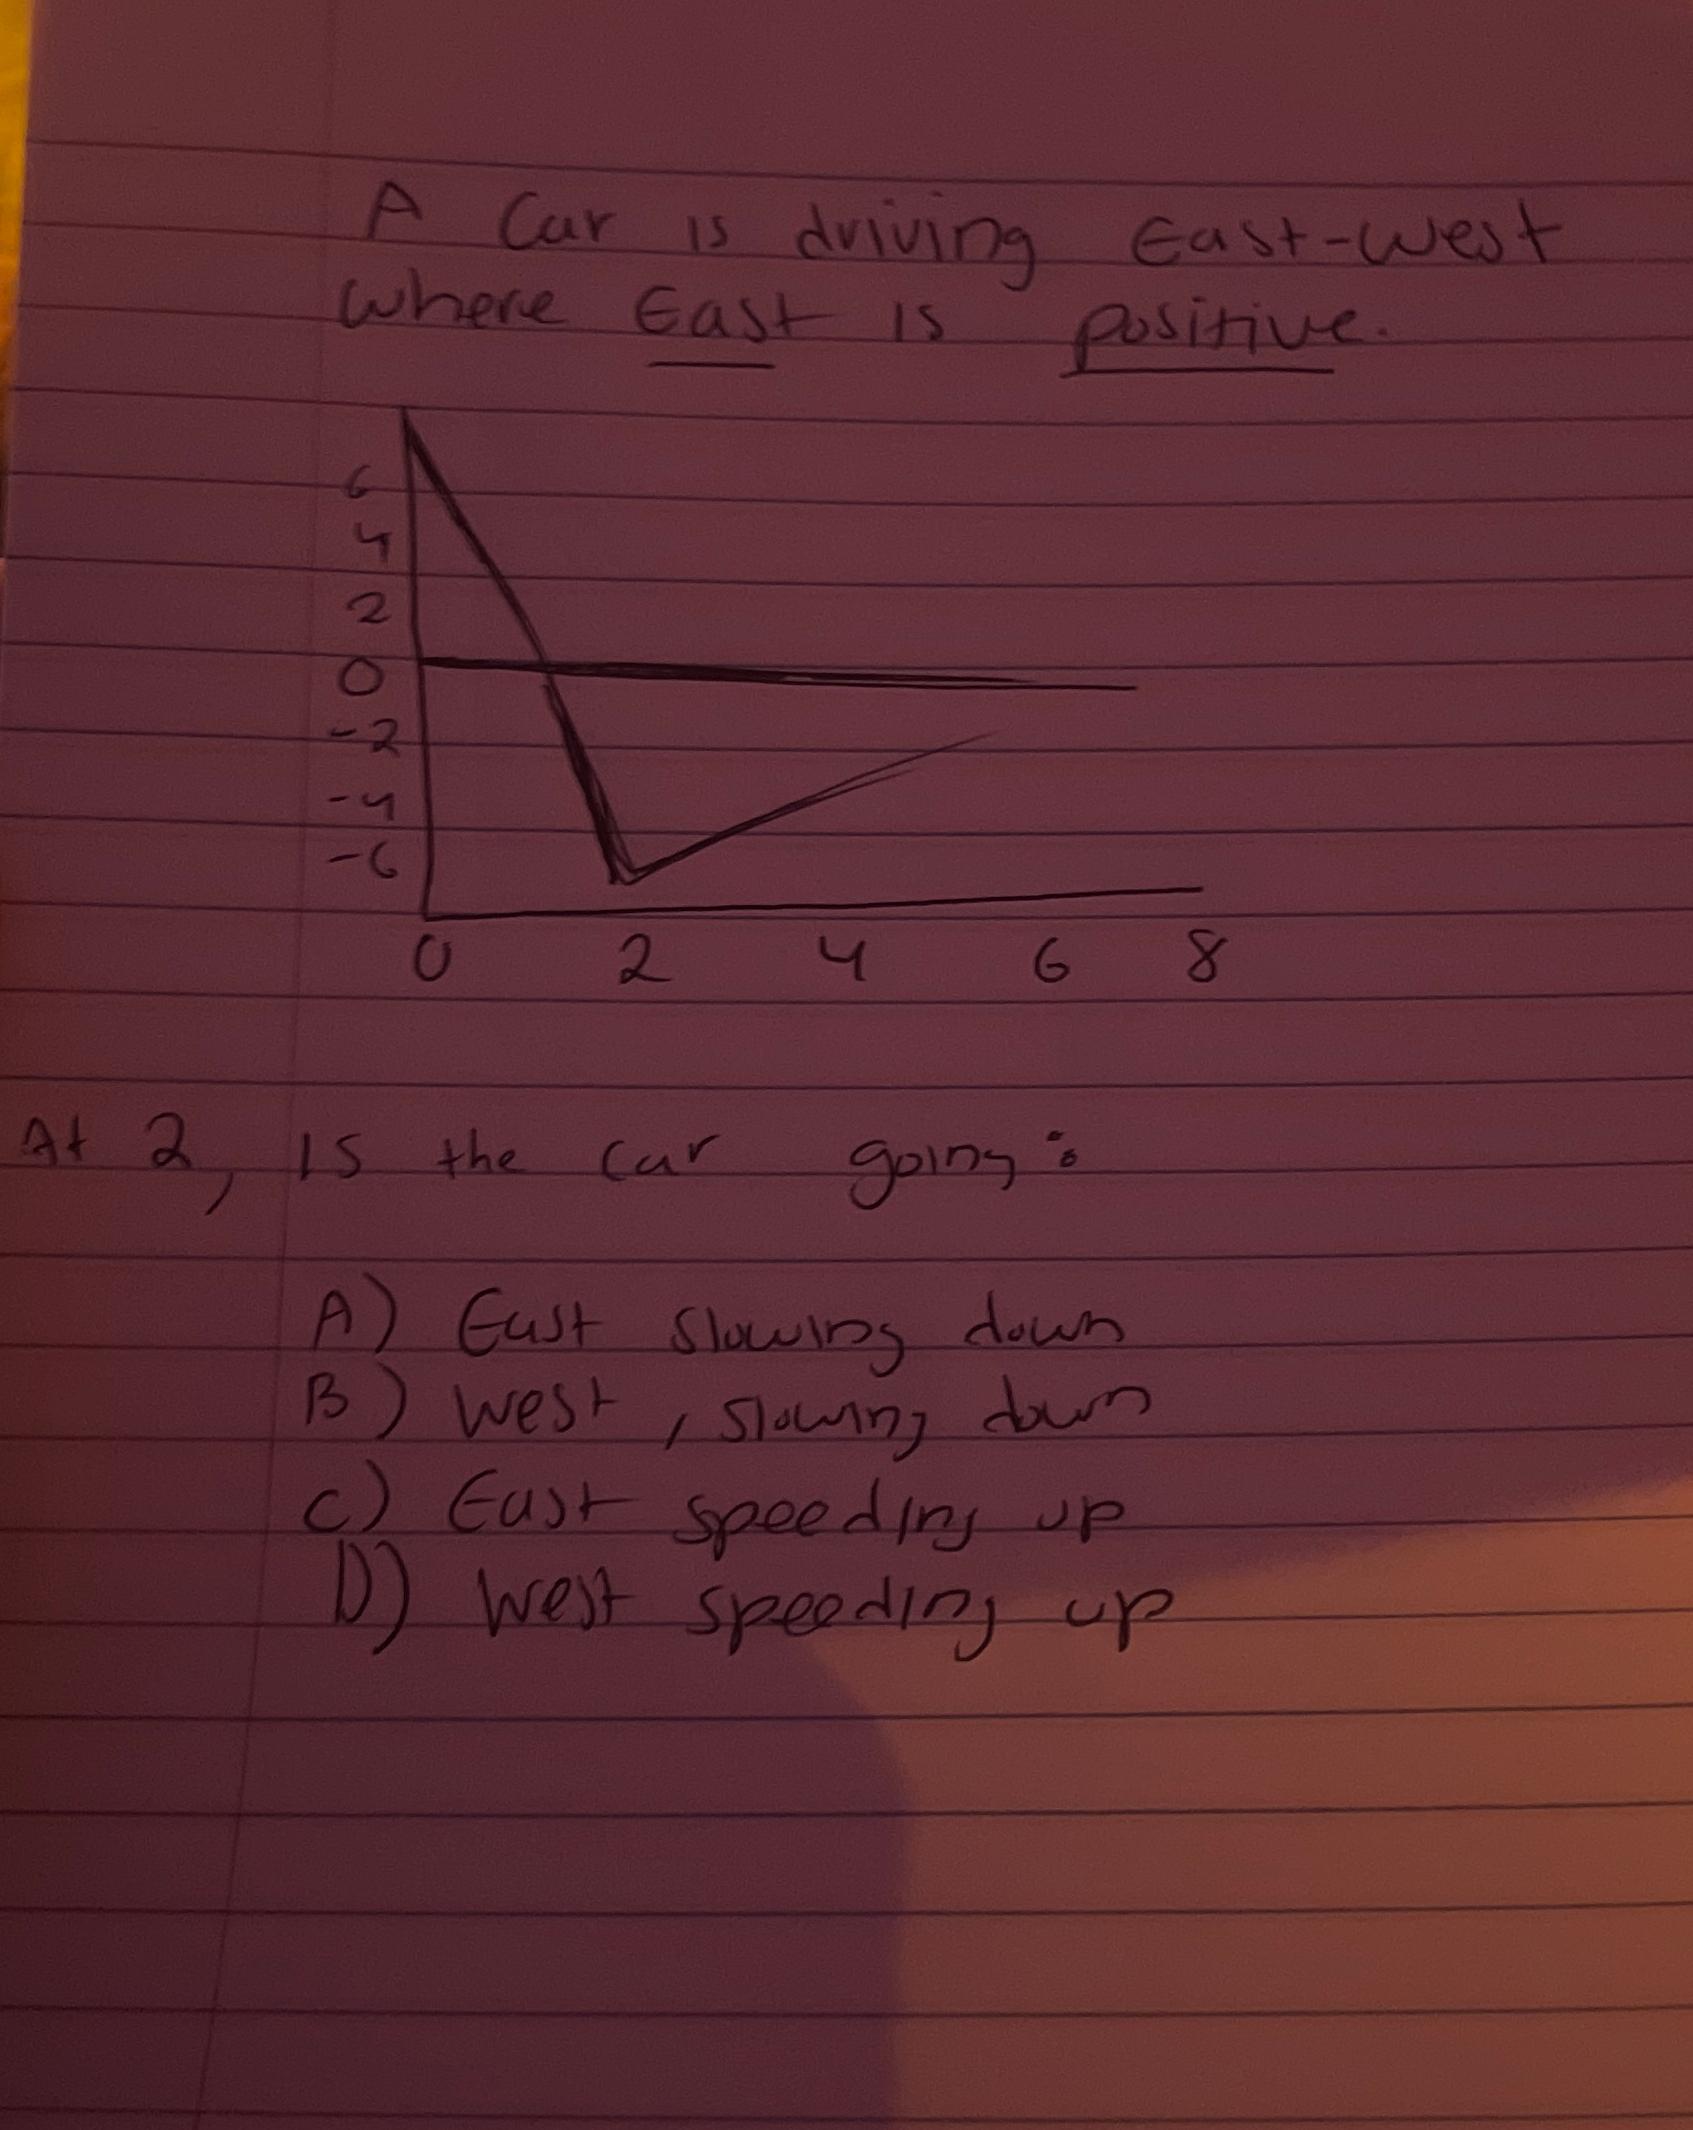 A Car is driving East-West
where East is positive.
6
4
2
0
-2
-4
-6
0 2 4 6 8
At 2, is the car going:
A) East slowing down
B) West, slowing down
C) East speeding up
D) West speeding up